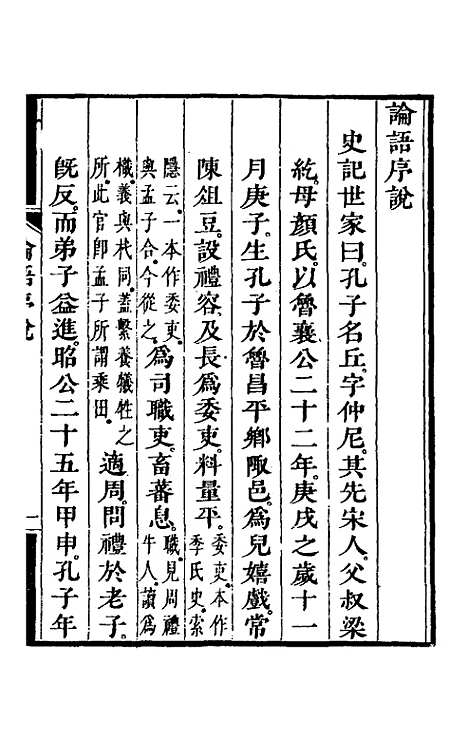 論語序說
史記世家曰。孔子名丘。字仲尼。其先宋人。父叔梁
紇。母顏氏。以魯襄公二十二年。庚戌之歲十一
月庚子。生孔子於魯昌平鄉陬邑。爲兒嬉戲。常
陳俎豆。設禮容。及長爲委吏。料量平。委吏。本作季氏史。索
隱云。一本作委吏。與孟子合。今從之。爲司職吏。畜蕃息。職。見周禮牛人。讀爲
樴。義與杙同。蓋繫養犧牲之所。此官卽孟子所謂乘田。適周。問禮於老子。
旣反。而弟子益進。昭公二十五年甲申。孔子年
論語序說
一